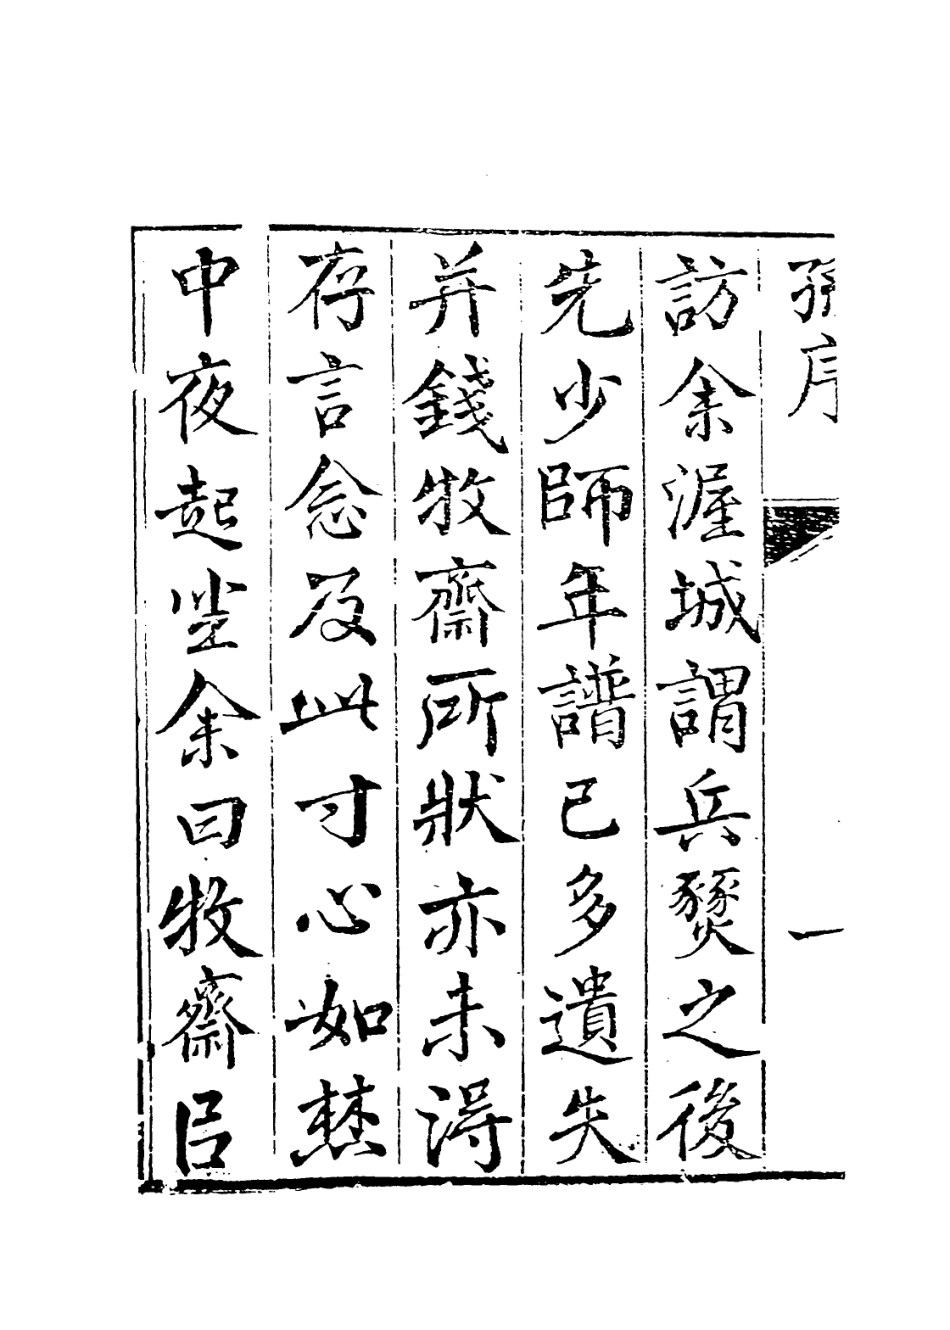 孫序
一
訪余渥城謂兵燹之後
先少師年譜已多遺失
并錢牧齋所狀亦未得
存言念及此寸心如焚
中夜起坐余曰牧齋㠯